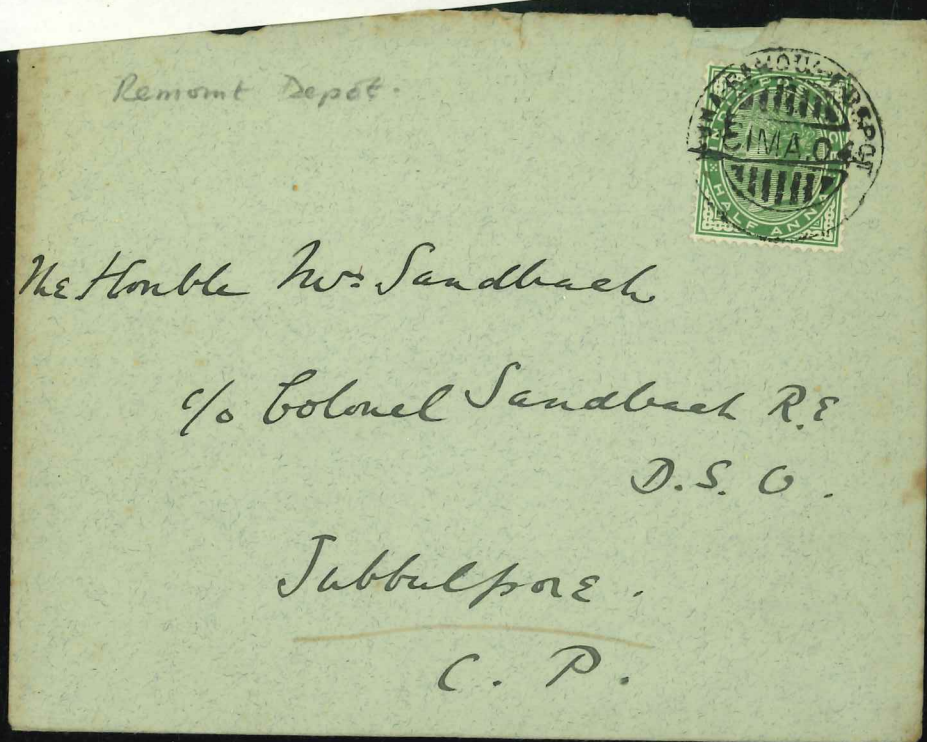 Remount Depôt.
31 MA.04
HALF ANNA
The Honble Mrs Sandbach
c/o Colonel Sandbach R.E
D.S.O.
Jubbulpore.
C. P.